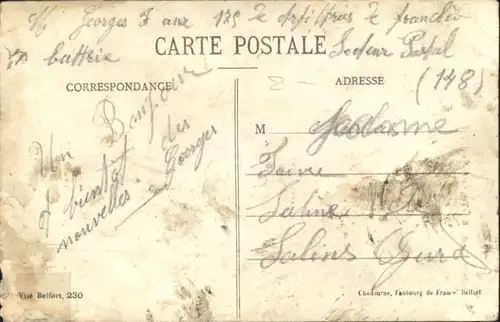 Georges F aux 129 e de tranchée
batterie
Secteur Postal
(148)
CARTE POSTALE
CORRESPONDANCE
ADRESSE
Un Bonjour
A bientot des
nouvelles Georges
M Madame
Faivre
Saline
Salins Jura
Visé Belfort, 230
Chadourne, Faubourg de France, Belfort